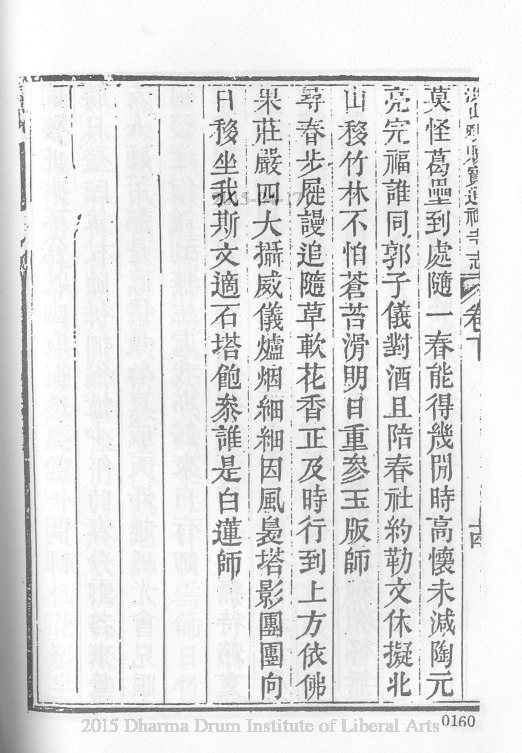 寶通禪寺志 卷下 十四
莫怪葛壘到處隨一春能得幾閒時高懷未減陶元
亮完福誰同郭子儀對酒且陪春社約勒文休擬北
山移竹林不怕蒼苔滑明日重參玉版師
尋春步屧謾追隨草軟花香正及時行到上方依佛
果莊嚴四大攝威儀爐烟細細因風裊塔影團團向
日移坐我斯文適石塔飽叅誰是白蓮師
2015 Dharma Drum Institute of Liberal Arts
0160